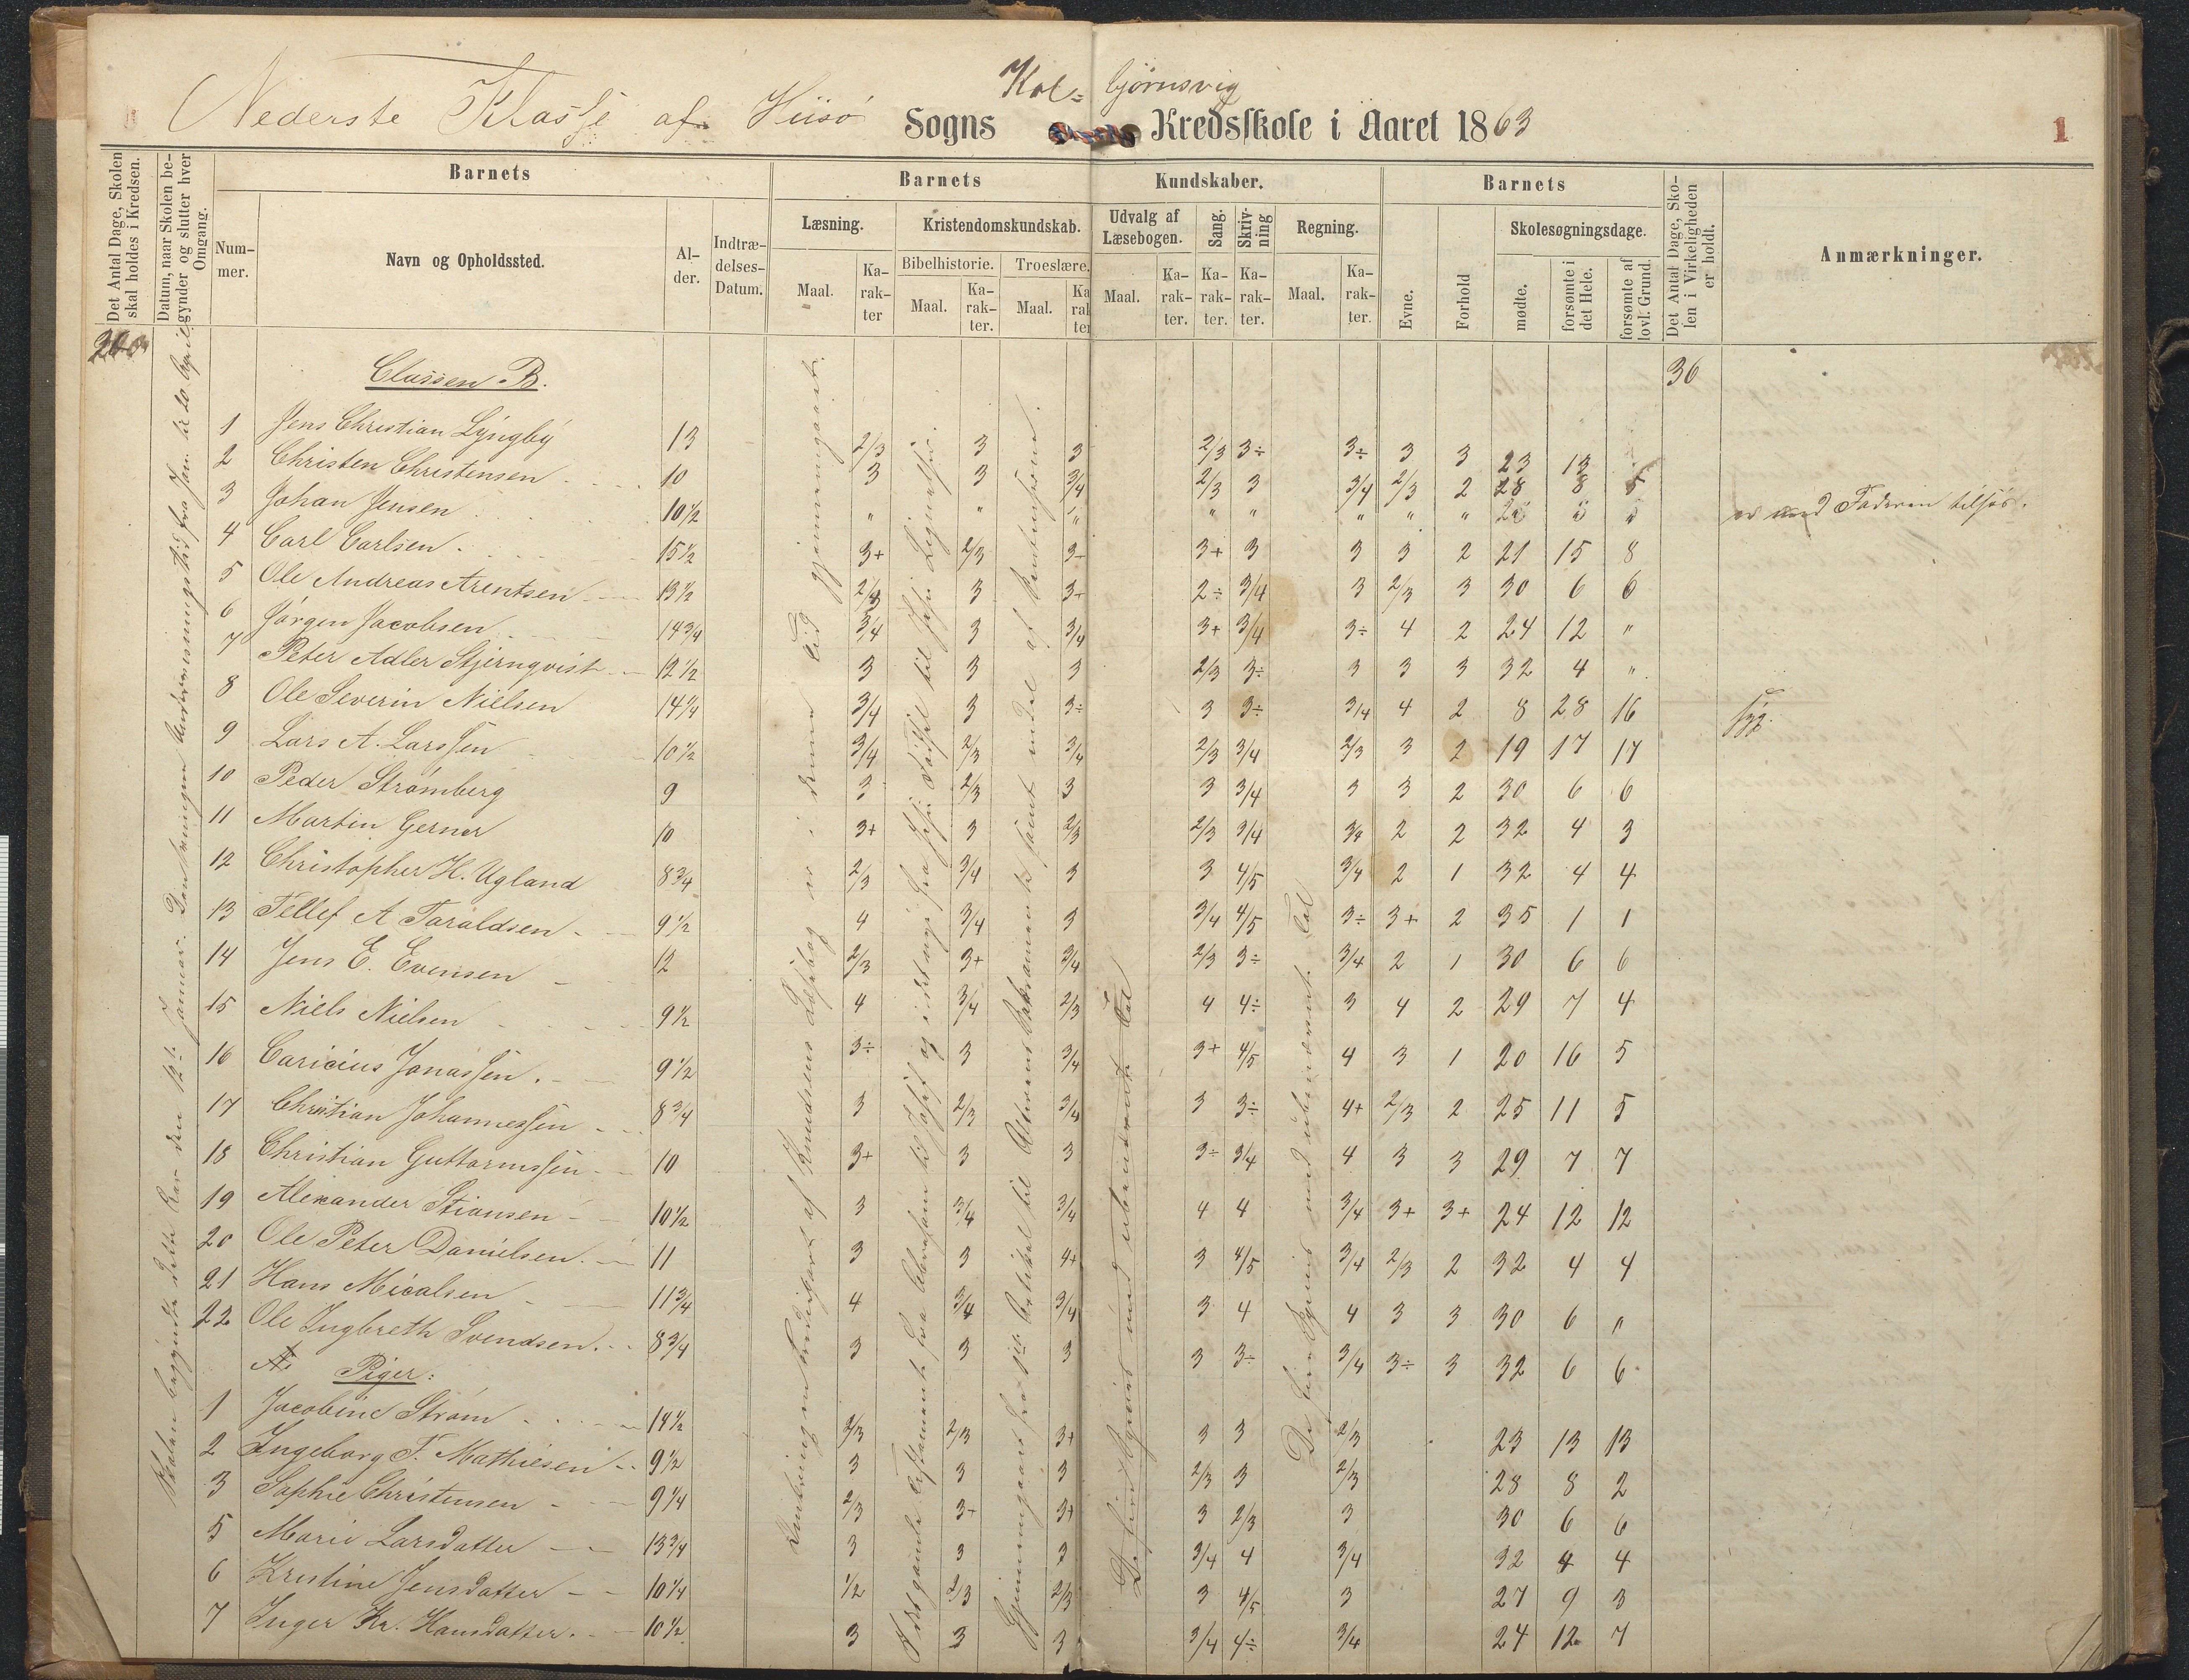 Nederste Klasse af Hiisø Sogns Kol= bjørnsvig Kredsskole i Aaret 1863
1
Det Antal Dage, Skolen skal holdes i Kredsen.
Datum, naar Skolen begynder og slutter hver Omgang.
Barnets
Nummer.
Navn og Opholdssted.
Alder.
Indtrædelses-Datum.
Barnets Kundskaber.
Læsning.
Maal.
Karakter
Kristendomskundskab.
Bibelhistorie.
Maal.
Karakter.
Troeslære.
Maal.
Udvalg af Læsebogen.
Maal.
Karakter.
Sang.
Karakter.
Skrivning
Karakter.
Regning.
Maal.
Karakter.
Barnets
Evne.
Forhold
Skolesøgningsdage.
mødte.
forsømte i det Hele.
forsømte af lovl. Grund.
Det Antal Dage, Skolen i Virkeligheden er holdt.
Anmærkninger.
Classen B.
36
1 Jens Christian Lyngby 13 2/3 3 3 2/3 3÷ 3÷ 3 3 23 13
2 Christen Christensen 10 3 3 3/4 2/3 3 3/4 2/3 2 28 8 5
3 Johan Jensen 10½ " " " " " " " " er med Faderen tilsøs.
4 Carl Carlsen 15½ 3+ 2/3 3- 3+ 3 3 3 2 21 15 8
5 Ole Andreas Arentsen 13½ 3 3+ 2÷ 3/4 3 2/3 3 30 6 6
6 Jørgen Jacobsen 14¾ 3/4 3 3/4 3+ 3/4 3÷ 4 2 24 12 "
7 Peter Adler Stjernqvist 12½ 3 3 3 2/3 3÷ 3 3 3 32 4 "
8 Ole Severin Nielsen 14¼ 3/4 3 3÷ 3 3÷ 3/4 4 2 8 28 16 syg.
9 Lars A. Larssen 10½ 3/4 2/3 3/4 2/3 3/4 2/3 3 2 19 17 17
10 Peder Strømberg 9 3 2/3 3 3 3/4 3 3 2 30 6 6
11 Martin Gerner 10 3+ 3 2/3 2/3 3/4 3/4 2 2 32 4 3
12 Christopher H. Ugland 8¾ 2/3 3/4 3 3 4/5 3/4 2 1 32 4 4
13 Tellef A Taraldsen 9½ 4 3/4 3 3/4 4/5 3÷ 3+ 2 35 1 1
14 Jens E. Evensen 12 2/3 3+ 3/4 2/3 3÷ 3/4 2 1 30 6 6
15 Niels Nielsen 9½ 4 3/4 2/3 4 4÷ 3 4 2 29 7 4
16 Caricius Jonassen. 9½ 3÷ 3 3/4 3+ 4/5 4 3 1 20 16 5
17 Christian Johannessen 8¾ 3 2/3 3/4 3 3÷ 4+ 2/3 2 25 11 5
18 Christian Guttormssen 10 3+ 3 3 3÷ 3/4 4 3 3 29 7 7
19 Alexander Stiansen 10½ 3 3/4 3/4 4 4 3/4 3+ 3+ 24 12 12
20 Ole Peter Danielsen. 11 3 3 4+ 3 4/5 3/4 2/3 2 32 4 4
21 Hans Micalsen 11¾ 4 3/4 3/4 3 4 4 3 3 30 6 "
22 Ole Ingbreth Svendsen. 8¾ 3 3 3 3 3÷ 3/4 3÷ 3 32 6 6
Piger:
1 Jacobine Strøm 14½ 2/3 2/3 3+ 3 3 2/3 23 13 13
2 Ingeborg T. Mathiesen 9½ 3 3 3 2/3 3 2/3 28 8 2
3 Sophie Christensen 9¼ 2/3 3- 3+ 3 2/3 3 30 6 6
5 Marie Larsdatter 13¾ 3 3 3 3/4 4 3/4 32 4 4
6 Kristine Jensdatter 10¼ 1/2 2/3 2/3 3 4/5 3 27 9 3
7 Inger Kr. Hansdatter. 10½ 3 3 3 3/4 4÷ 3/4 24 12 7